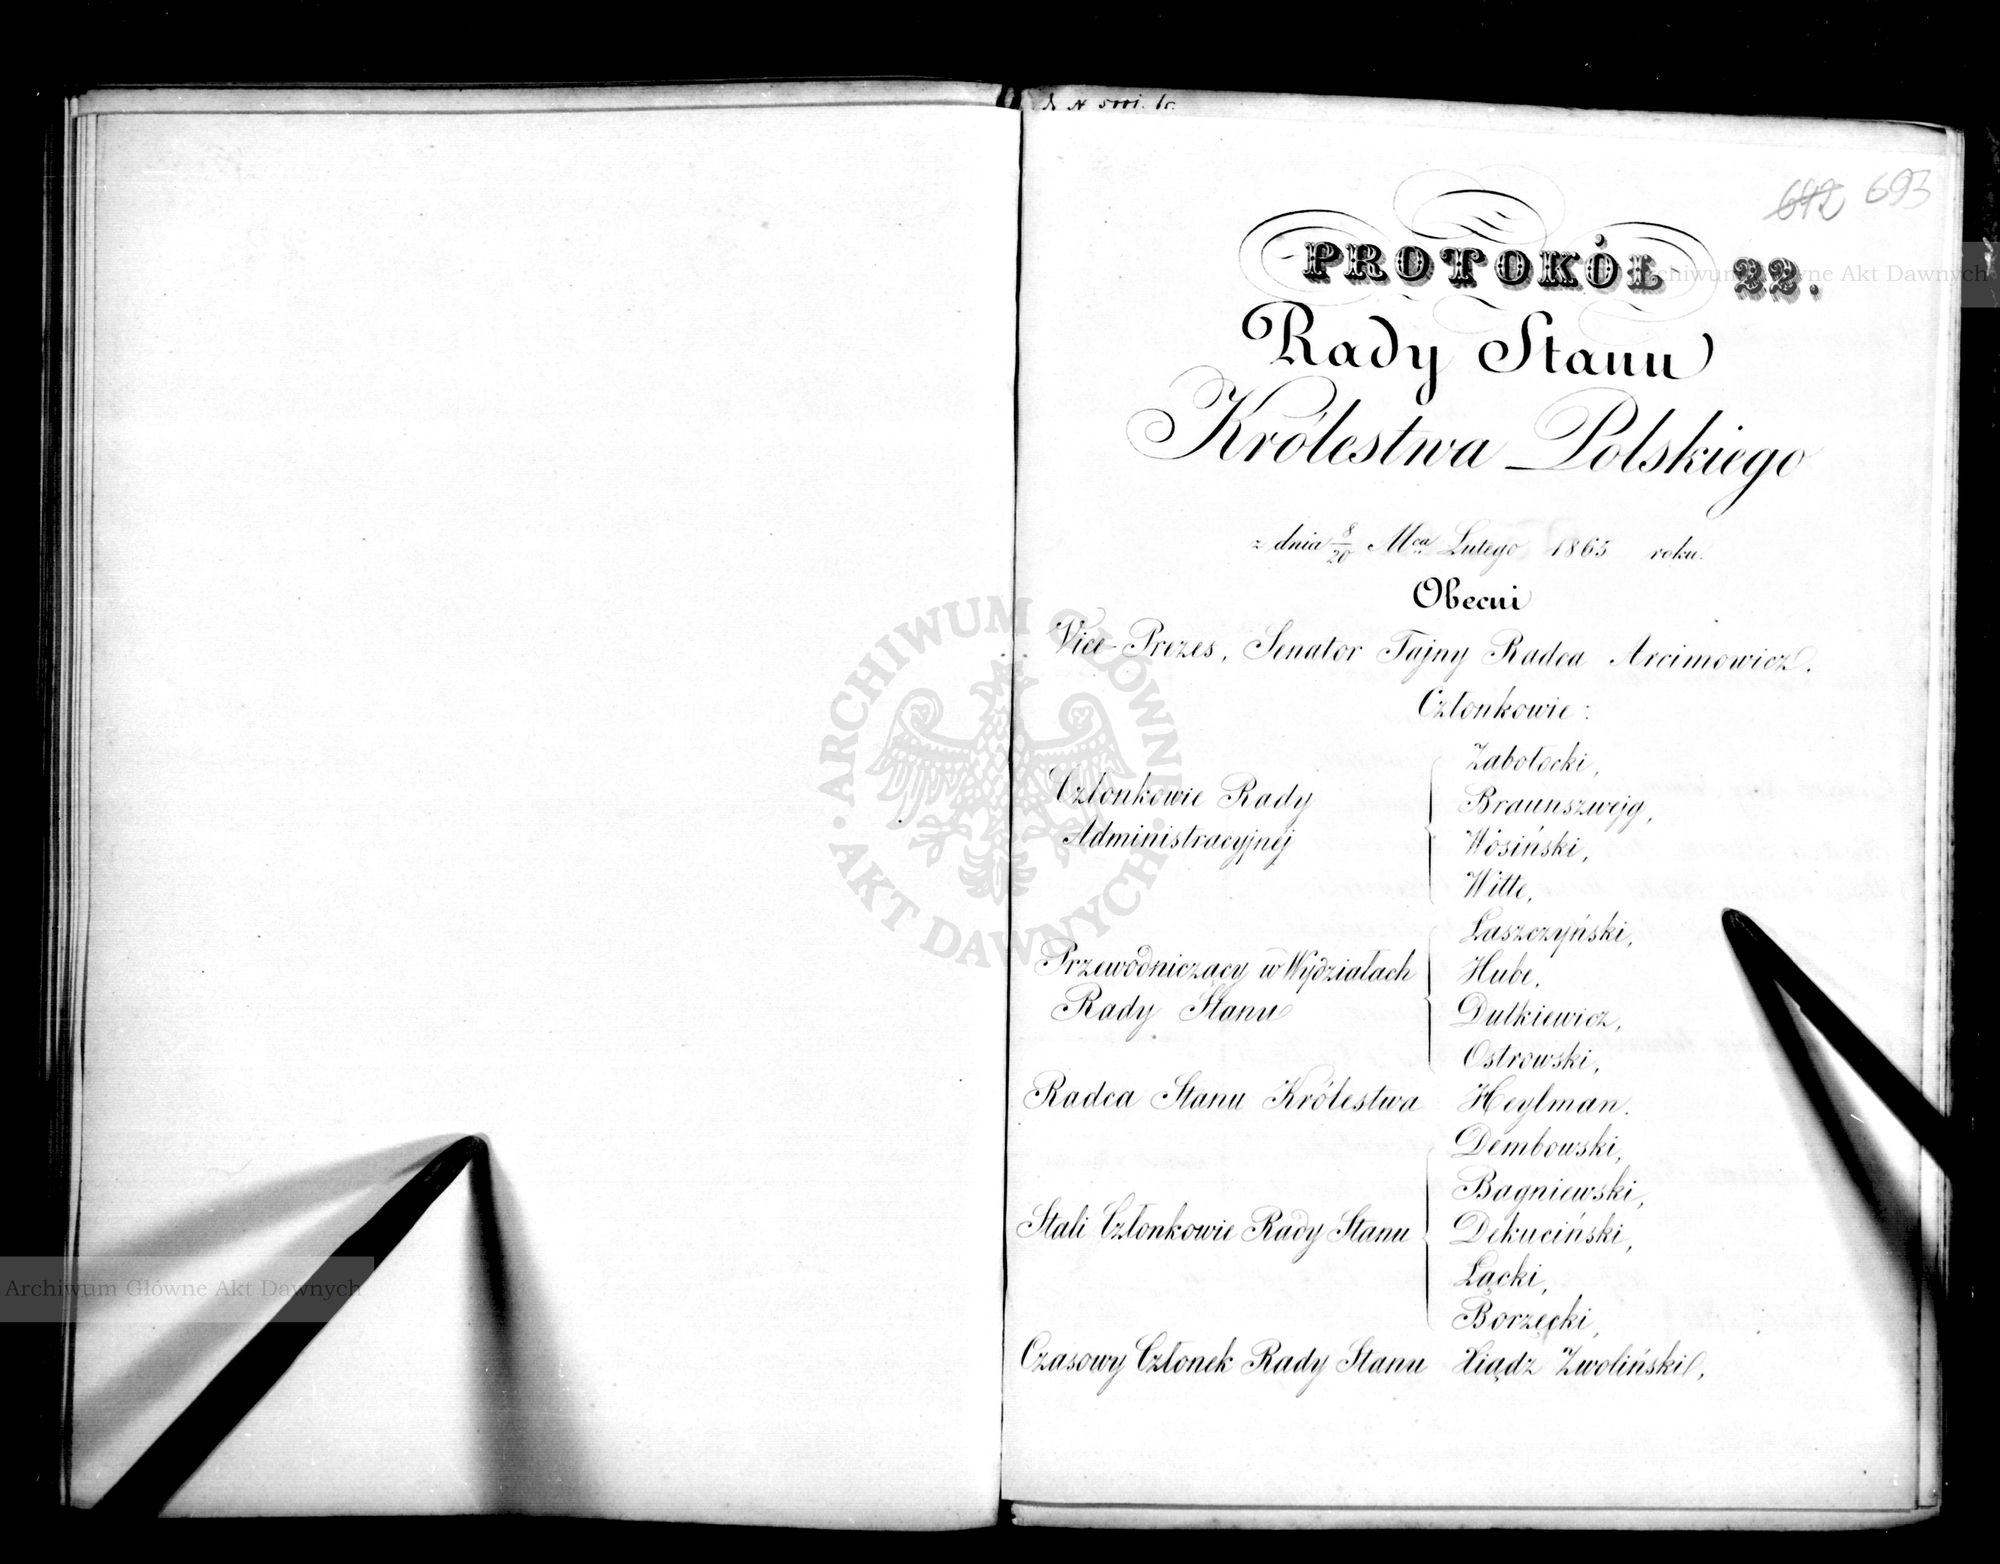 693
PROTOKÓŁ 22.
Rady Stanu
Królestwa Polskiego
z dnia 8/20 Mca Lutego 1865 roku.
Obecni
Vice-Prezes, Senator Tajny Radca Arcimowicz.
Członkowie:
Członkowie Rady Administracyjnéj
Zabołocki,
Braunszwejg,
Wosiński,
Witte,
Przewodniczący w Wydziałach Rady Stanu
Łaszczyński,
Hube,
Dutkiewicz,
Ostrowski,
Radca Stanu Królestwa Heylman.
Stali Członkowie Rady Stanu
Dembowski,
Bagniewski,
Dekuciński,
Łącki,
Borzęcki,
Czasowy Członek Rady Stanu Xiądz Zwoliński,
ARCHIWUM GŁÓWNE AKT DAWNYCH
Archiwum Główne Akt Dawnych
Archiwum Główne Akt Dawnych